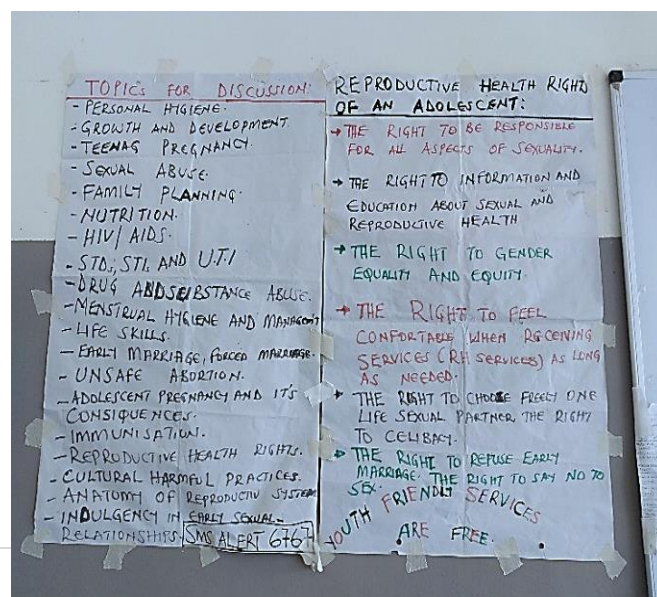 TOPICS FOR DISCUSSION:
- PERSONAL HYGIENE.
- GROWTH AND DEVELOPMENT.
- TEENAG PREGNANCY.
- SEXUAL ABUSE.
- FAMILY PLANNING.
- NUTRITION.
- HIV/AIDS.
- STDs, STI AND U.T.I
- DRUG ABDSUBSTANCE ABUSE.
- MENSTRUAL HYGIENE AND MANAGEMT
- LIFE SKILLS.
- EARLY MARRIAGE, FORCED MARRIAGE.
- UNSAFE ABORTION.
- ADOLESCENT PREGNANCY AND IT'S
CONSIQUENCES.
- IMMUNISATION.
- REPRODUCTIVE HEALTH RIGHTS.
- CULTURAL HARMFUL PRACTICES.
- ANATOMY OF REPRODUCTIV SYSTEM
- INDULGENCY IN EARLY SEXUAL
RELATIONSHIPS. SMS ALERT 6767
REPRODUCTIVE HEALTH RIGHT
OF AN ADOLESCENT:
→ THE RIGHT TO BE RESPONSIBLE
FOR ALL ASPECTS OF SEXUALITY.
→ THE RIGHT TO INFORMATION AND
EDUCATION ABOUT SEXUAL AND
REPRODUCTIVE HEALTH
→ THE RIGHT TO GENDER
EQUALITY AND EQUITY.
→ THE RIGHT TO FEEL
CONFORTABLE WHEN RECEIVING
SERVICES (RH SERVICES) AS LONG
AS NEEDED.
→ THE RIGHT TO CHOOSE FREELY ONE
LIFE SEXUAL PARTNER, THE RIGHT
TO CELIBACY.
→ THE RIGHT TO REFUSE EARLY
MARRIAGE. THE RIGHT TO SAY NO TO
SEX.
YOUTH FRIENDLY SERVICES
ARE FREE.